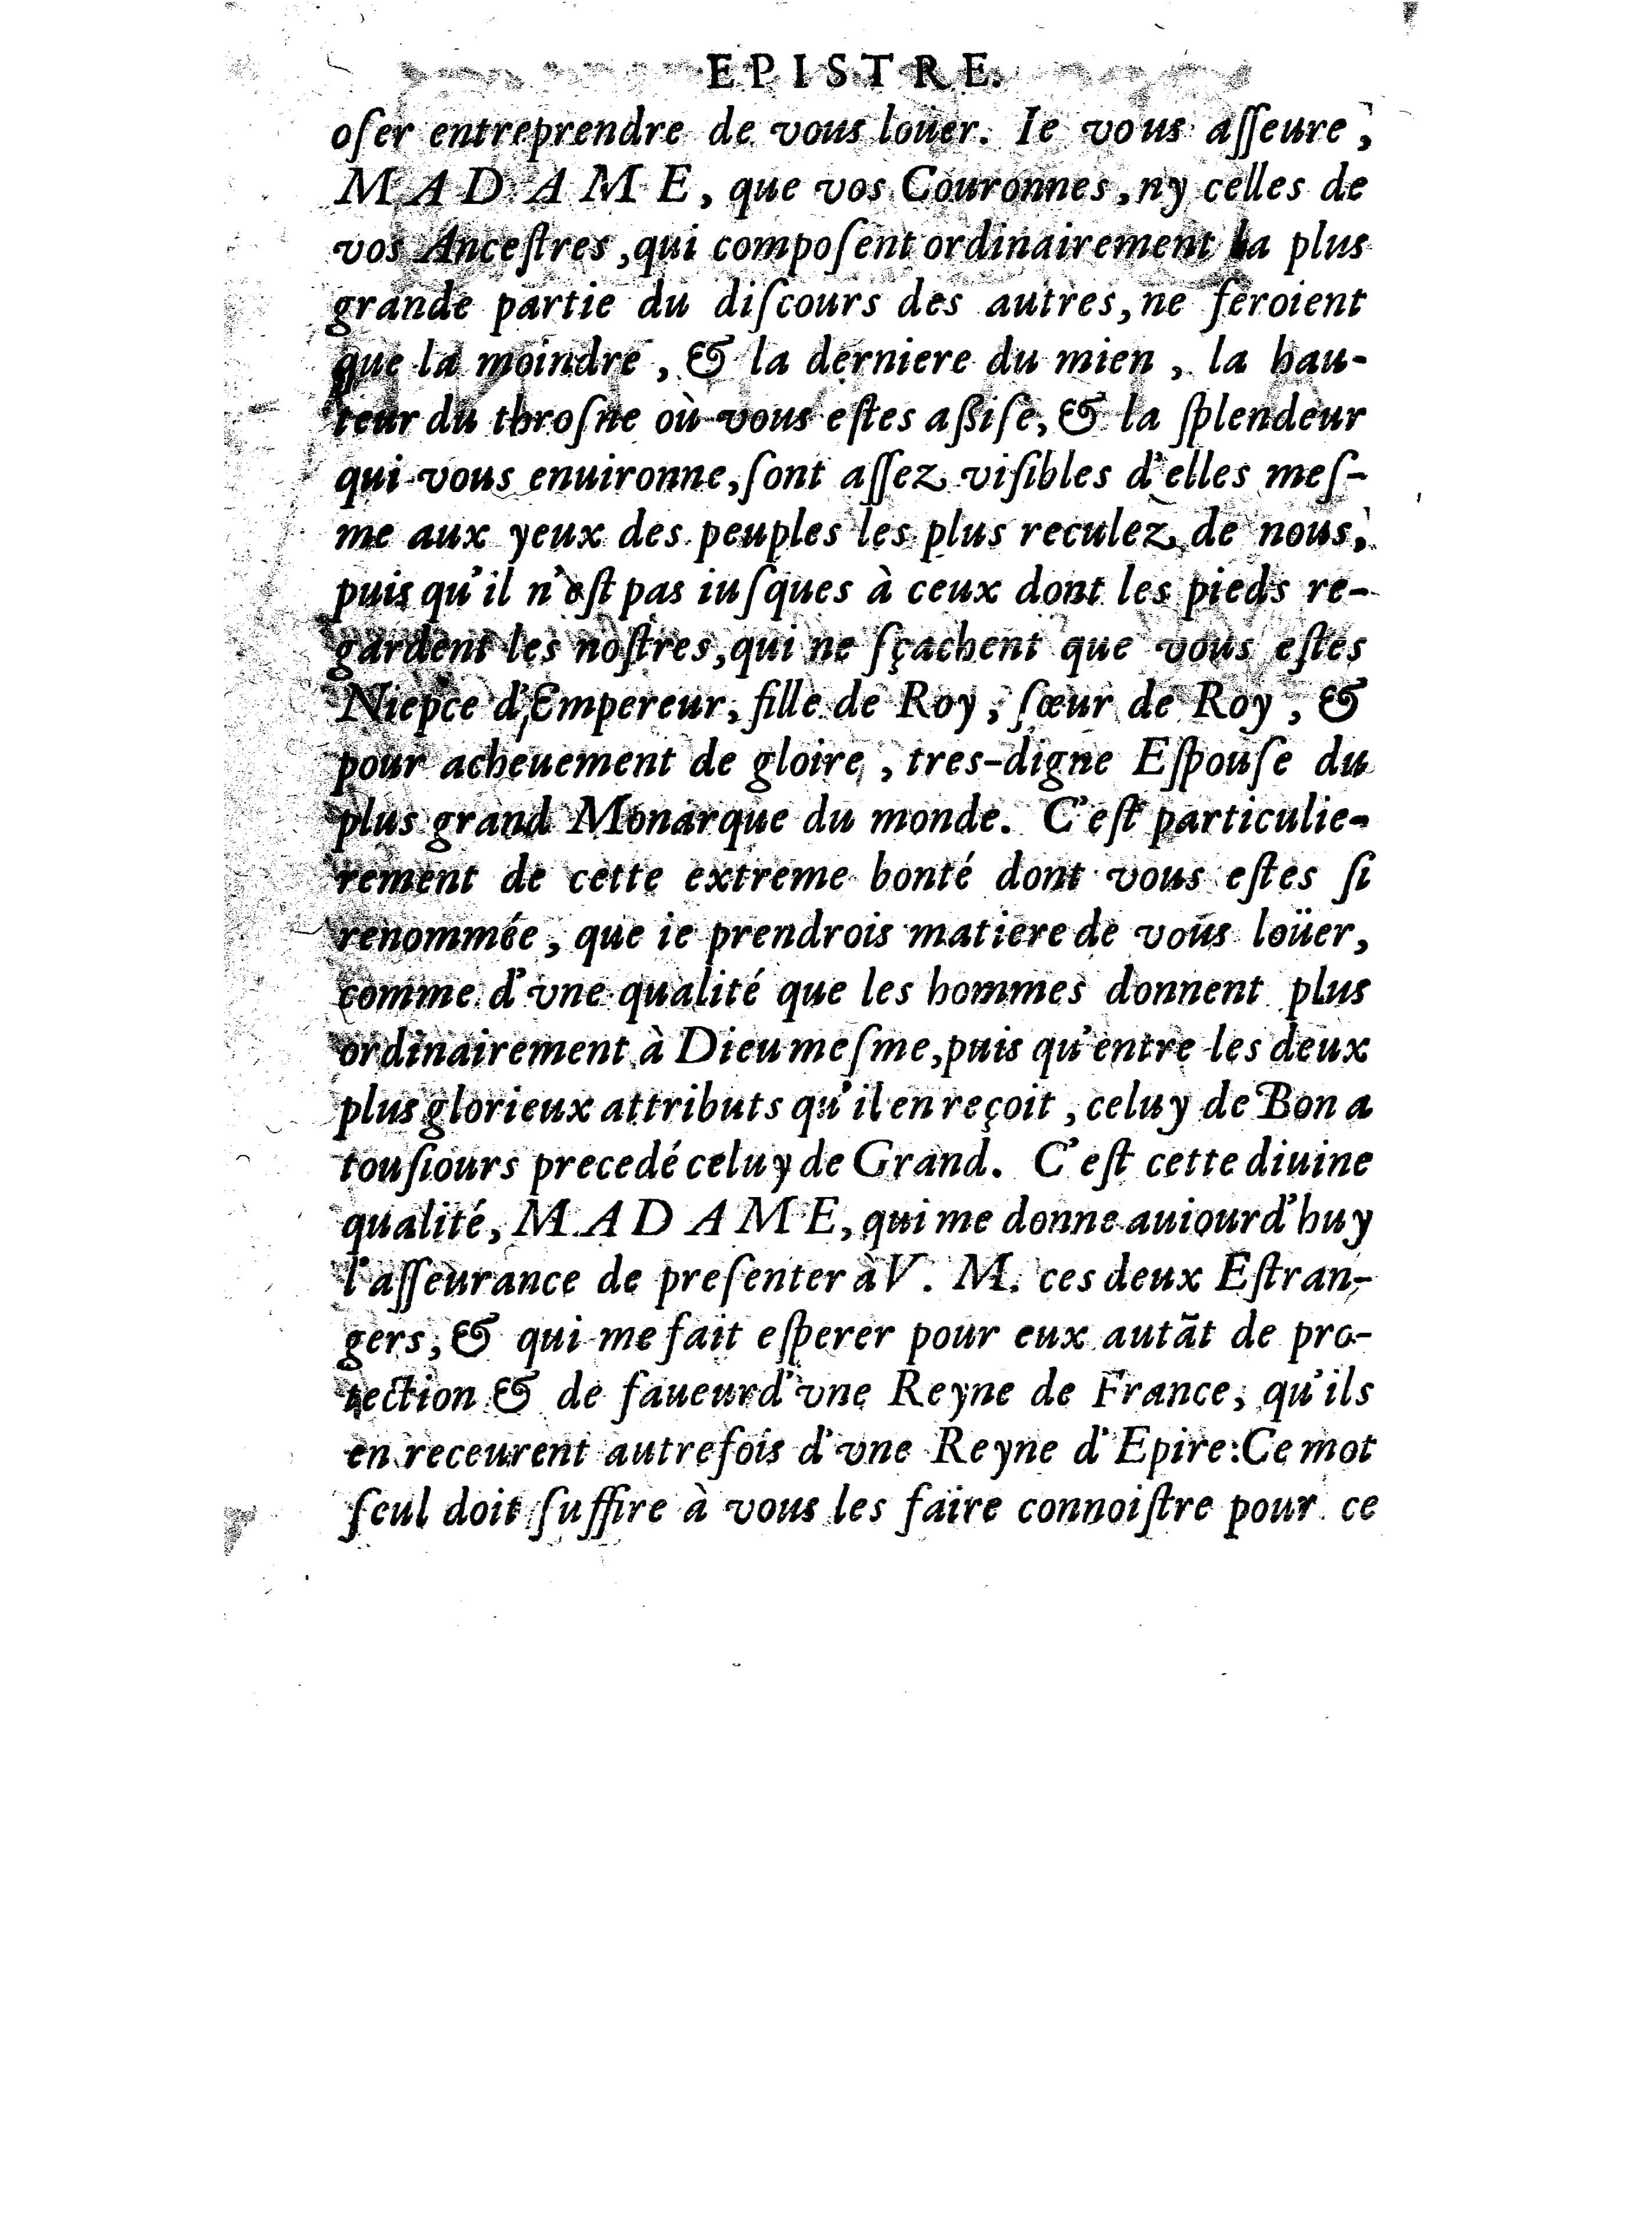 EPISTRE.
oſer entreprendre de vous loüer. Ie vous aſſeure,
MADAME, que vos Couronnes, ny celles de
vos Anceſtres, qui compoſent ordinairement la plus
grande partie du diſcours des autres, ne feroient
que la moindre, & la derniere du mien, la hau-
teur du throſne où vous eſtes aßiſe, & la ſplendeur
qui vous enuironne, ſont aſſez viſibles d'elles meſ-
me aux yeux des peuples les plus reculez de nous,
puis qu'il n'eſt pas iuſques à ceux dont les pieds re-
gardent les noſtres, qui ne ſçachent que vous eſtes
Niepce d'Empereur, fille de Roy, ſœur de Roy, &
pour acheuement de gloire, tres-digne Eſpouſe du
plus grand Monarque du monde. C'eſt particulie-
rement de cette extreme bonté dont vous eſtes ſi
renommée, que ie prendrois matiere de vous loüer,
comme d'vne qualité que les hommes donnent plus
ordinairement à Dieu meſme, puis qu'entre les deux
plus glorieux attributs qu'il en reçoit, celuy de Bon a
touſiours precedé celuy de Grand. C'eſt cette diuine
qualité, MADAME, qui me donne auiourd'huy
l'aſſeurance de preſenter à V. M. ces deux Eſtran-
gers, & qui me fait eſperer pour eux autãt de pro-
tection & de faueur d'vne Reyne de France, qu'ils
en receurent autrefois d'vne Reyne d'Epire: Ce mot
ſeul doit ſuffire à vous les faire connoiſtre pour ce